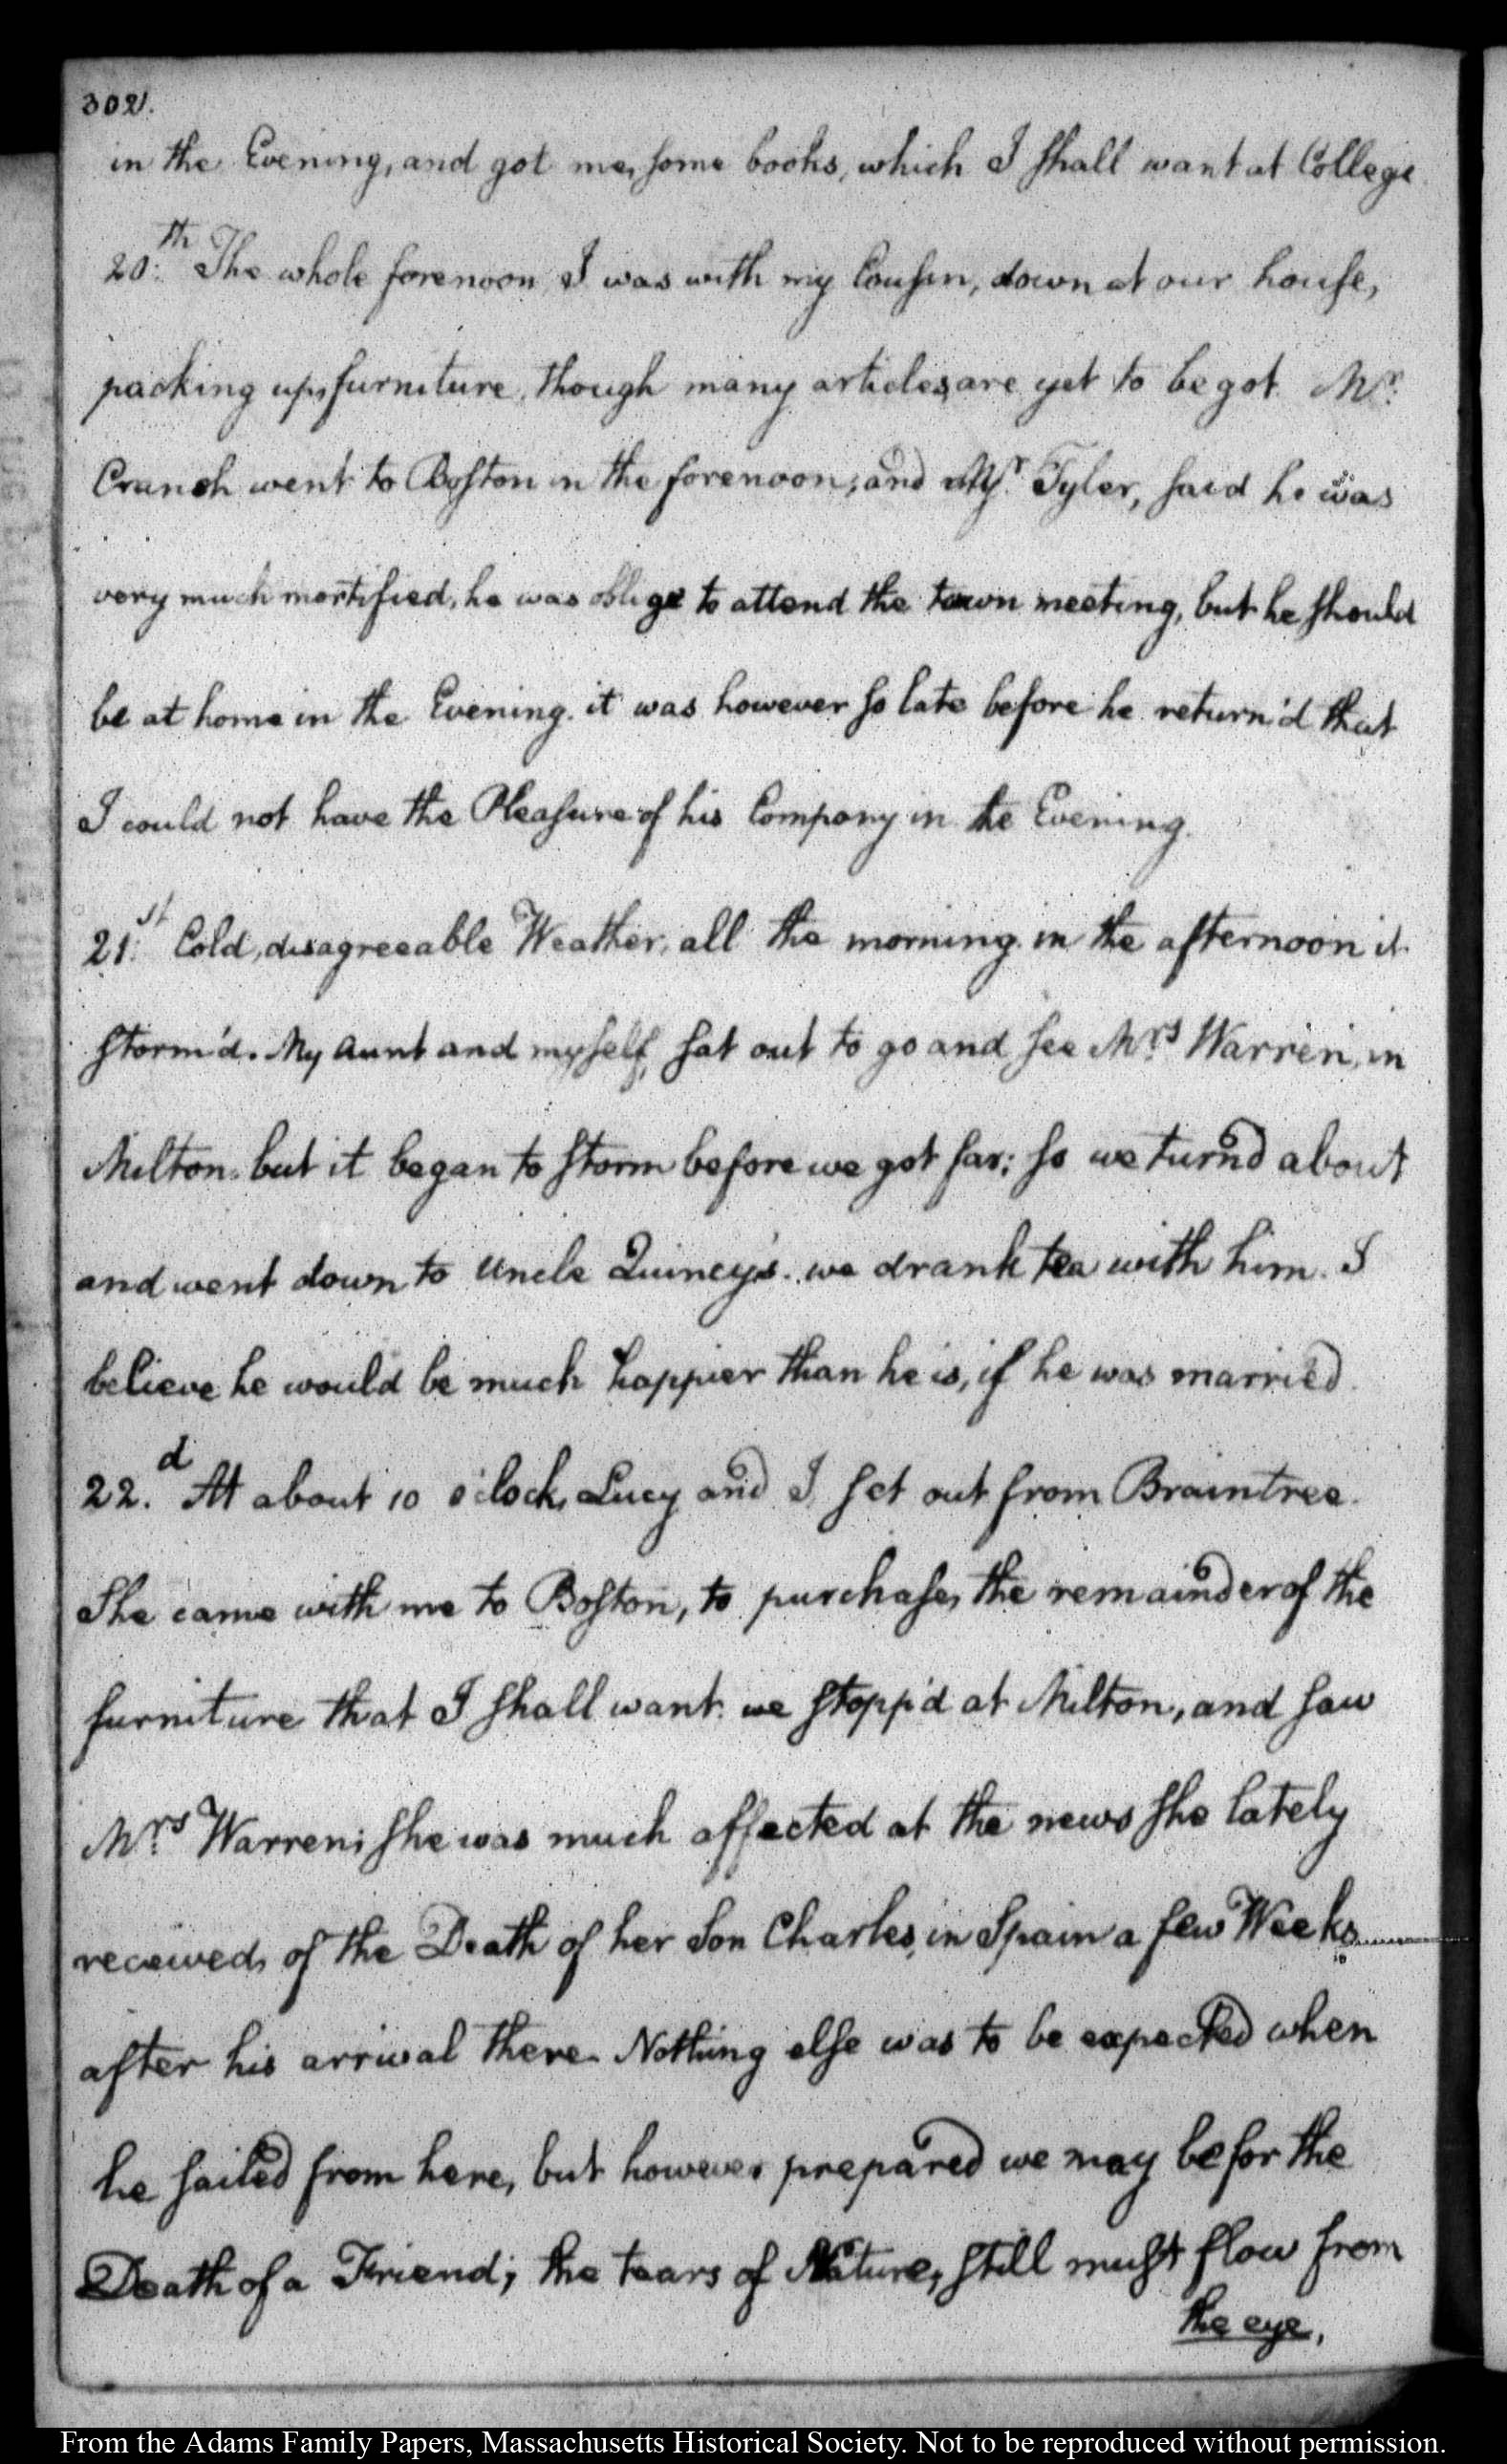 302.
in the Evening, and got me, some books, which I shall want at College
20:th The whole forenoon, I was with my Cousin, down at our house,
packing up, furniture, though many articles, are yet to be got. Mr.
Cranch went to Boston in the forenoon, and Mr. Tyler, said he was
very much mortified, he was oblige to attend the town meeting, but he should
be at home in the Evening. it was however so late before he return'd that
I could not have the Pleasure of his Company in the Evening.
21:st Cold, disagreeable Weather, all the morning. in the afternoon it
storm'd. My Aunt and myself, sat out to go and see Mrs. Warren, in
Milton. but it began to storm before we got far; so we turn'd about
and went down to Uncle Quincy's. we drank tea with him. I
believe he would be much happier than he is, if he was married.
22.d At about 10 o'clock, Lucy and I, set out from Braintree.
She came with me to Boston, to purchase, the remainder of the
furniture that I shall want. we stopp'd at Milton, and saw
Mrs. Warren; she was much affected at the news she lately
received, of the Death of her Son Charles, in Spain a few Weeks
after his arrival there. Nothing else was to be expected when
he sailed from here, but however prepared we may be for the
Death of a Friend; the tears of Nature, still must flow from
the eye,
From the Adams Family Papers, Massachusetts Historical Society. Not to be reproduced without permission.